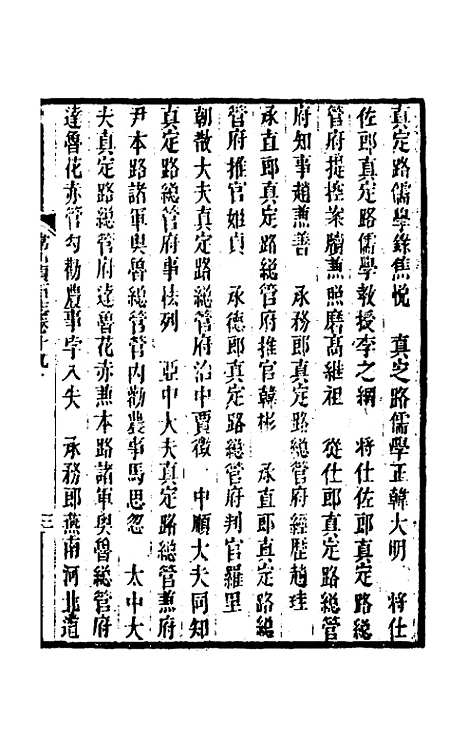 真定路儒學錄焦悅　真定路儒學正韓大明　將仕
佐郎真定路儒學教授李之綱　將仕佐郎真定路緫
管府提控案牘兼照磨高繼祖　從仕郎真定路緫管
府知事趙兼善　承務郎真定路緫管府經歷趙珪
承直郎真定路緫管府推官韓彬　承直郎真定路緫
管府推官姫貞　承德郎真定路緫管府判官羅里
朝散大夫真定路緫管府治中賈徵　中順大夫同知
真定路緫管府事桂列　亞中大夫真定路緫管兼府
尹本路諸軍奧魯緫管管內勸農事馬思忽　太中大
夫真定路緫管府達魯花赤兼本路諸軍奧魯緫管府
達魯花赤管勾勸農事皆入失　承務郎燕南河北道
三